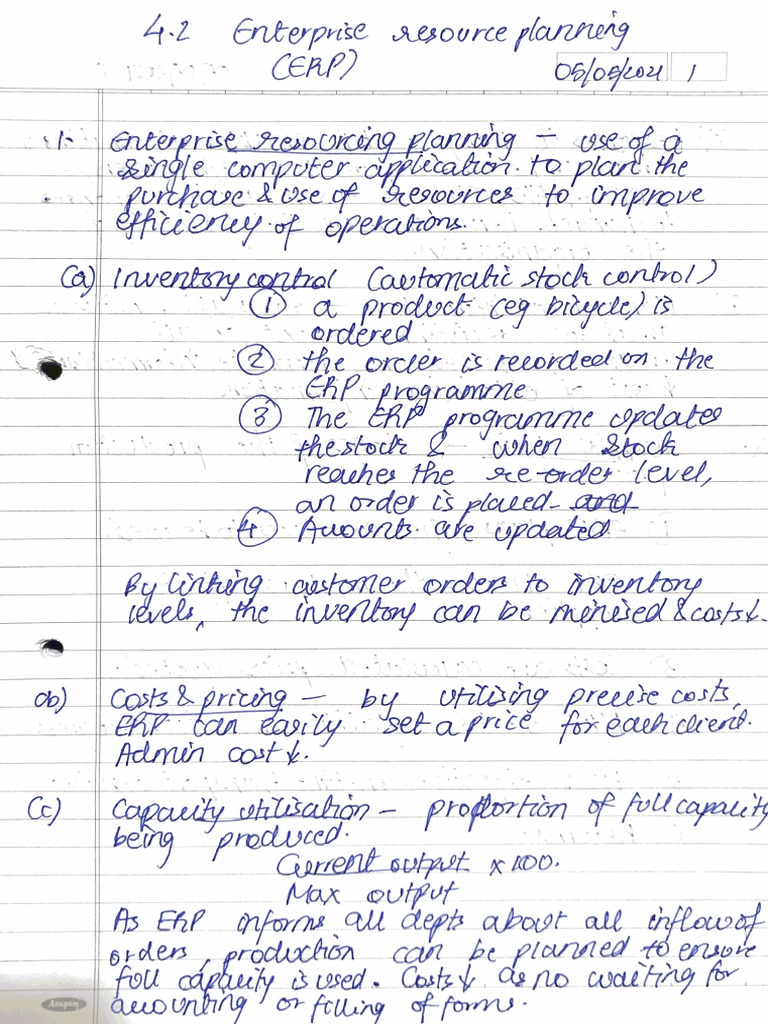 4.2 Enterprise resource planning
(ERP)
05/05/2021 1
1. Enterprise resourcing planning - use of a
single computer application to plan the
purchase & use of resources to improve
efficiency of operations.
(a) Inventory control (automatic stock control)
① a product (eg bicycle) is
ordered
② the order is recorded on the
ERP programme
③ The ERP programme updates
the stock & when stock
reaches the re-order level,
an order is placed and
④ Accounts are updated
By linking customer orders to inventory
levels, the inventory can be minised & costs↓.
(b) Costs & pricing - by utilising precise costs,
ERP can easily set a price for each client.
Admin cost↓.
(c) Capacity utilisation - proportion of full capacity
being produced.
Current output x 100.
Max output
As ERP informs all depts about all inflow of
orders, production can be planned to ensure
full capacity is used. Costs↓ as no waiting for
accounting or filling of forms.